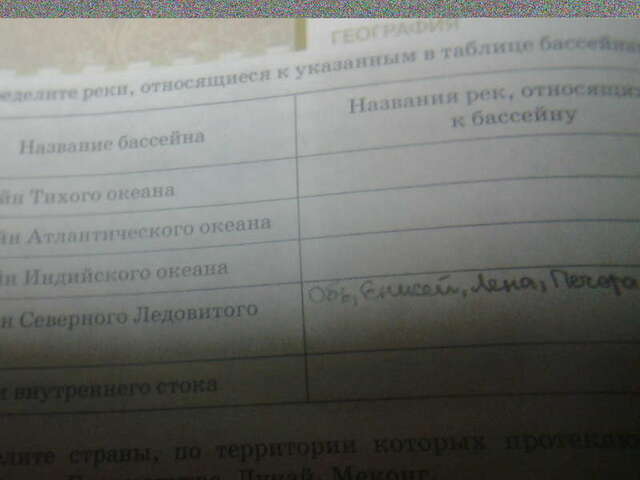 ГЕОГРАФИЯ
реки, относящиеся к указанным в таблице
Название бассейна
Названия рек, относящих
к бассейну
Тихого океана
Атлантического океана
Индийского океана
Северного Ледовитого
Обь, Енисей, Лена, Печора
внутреннего стока
страны, по территории которых
Дунай, Меконг.